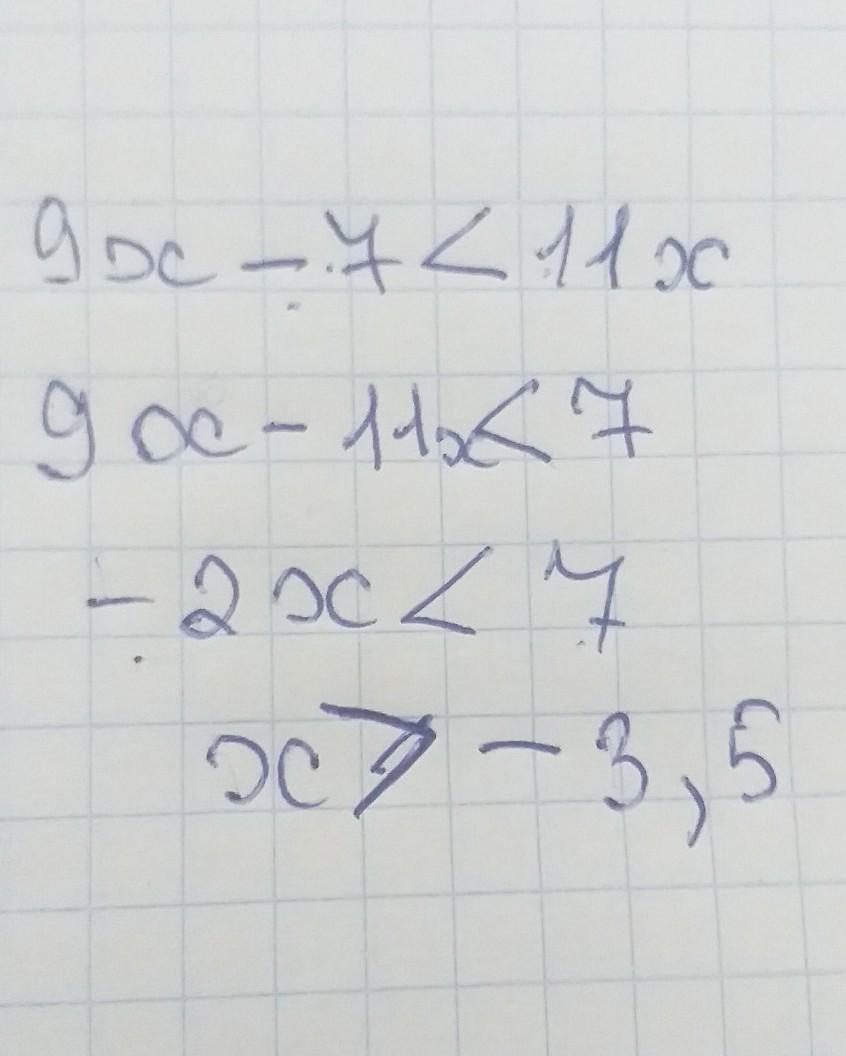 9x - 7 < 11x
9x - 11x < 7
- 2x < 7
x > - 3,5